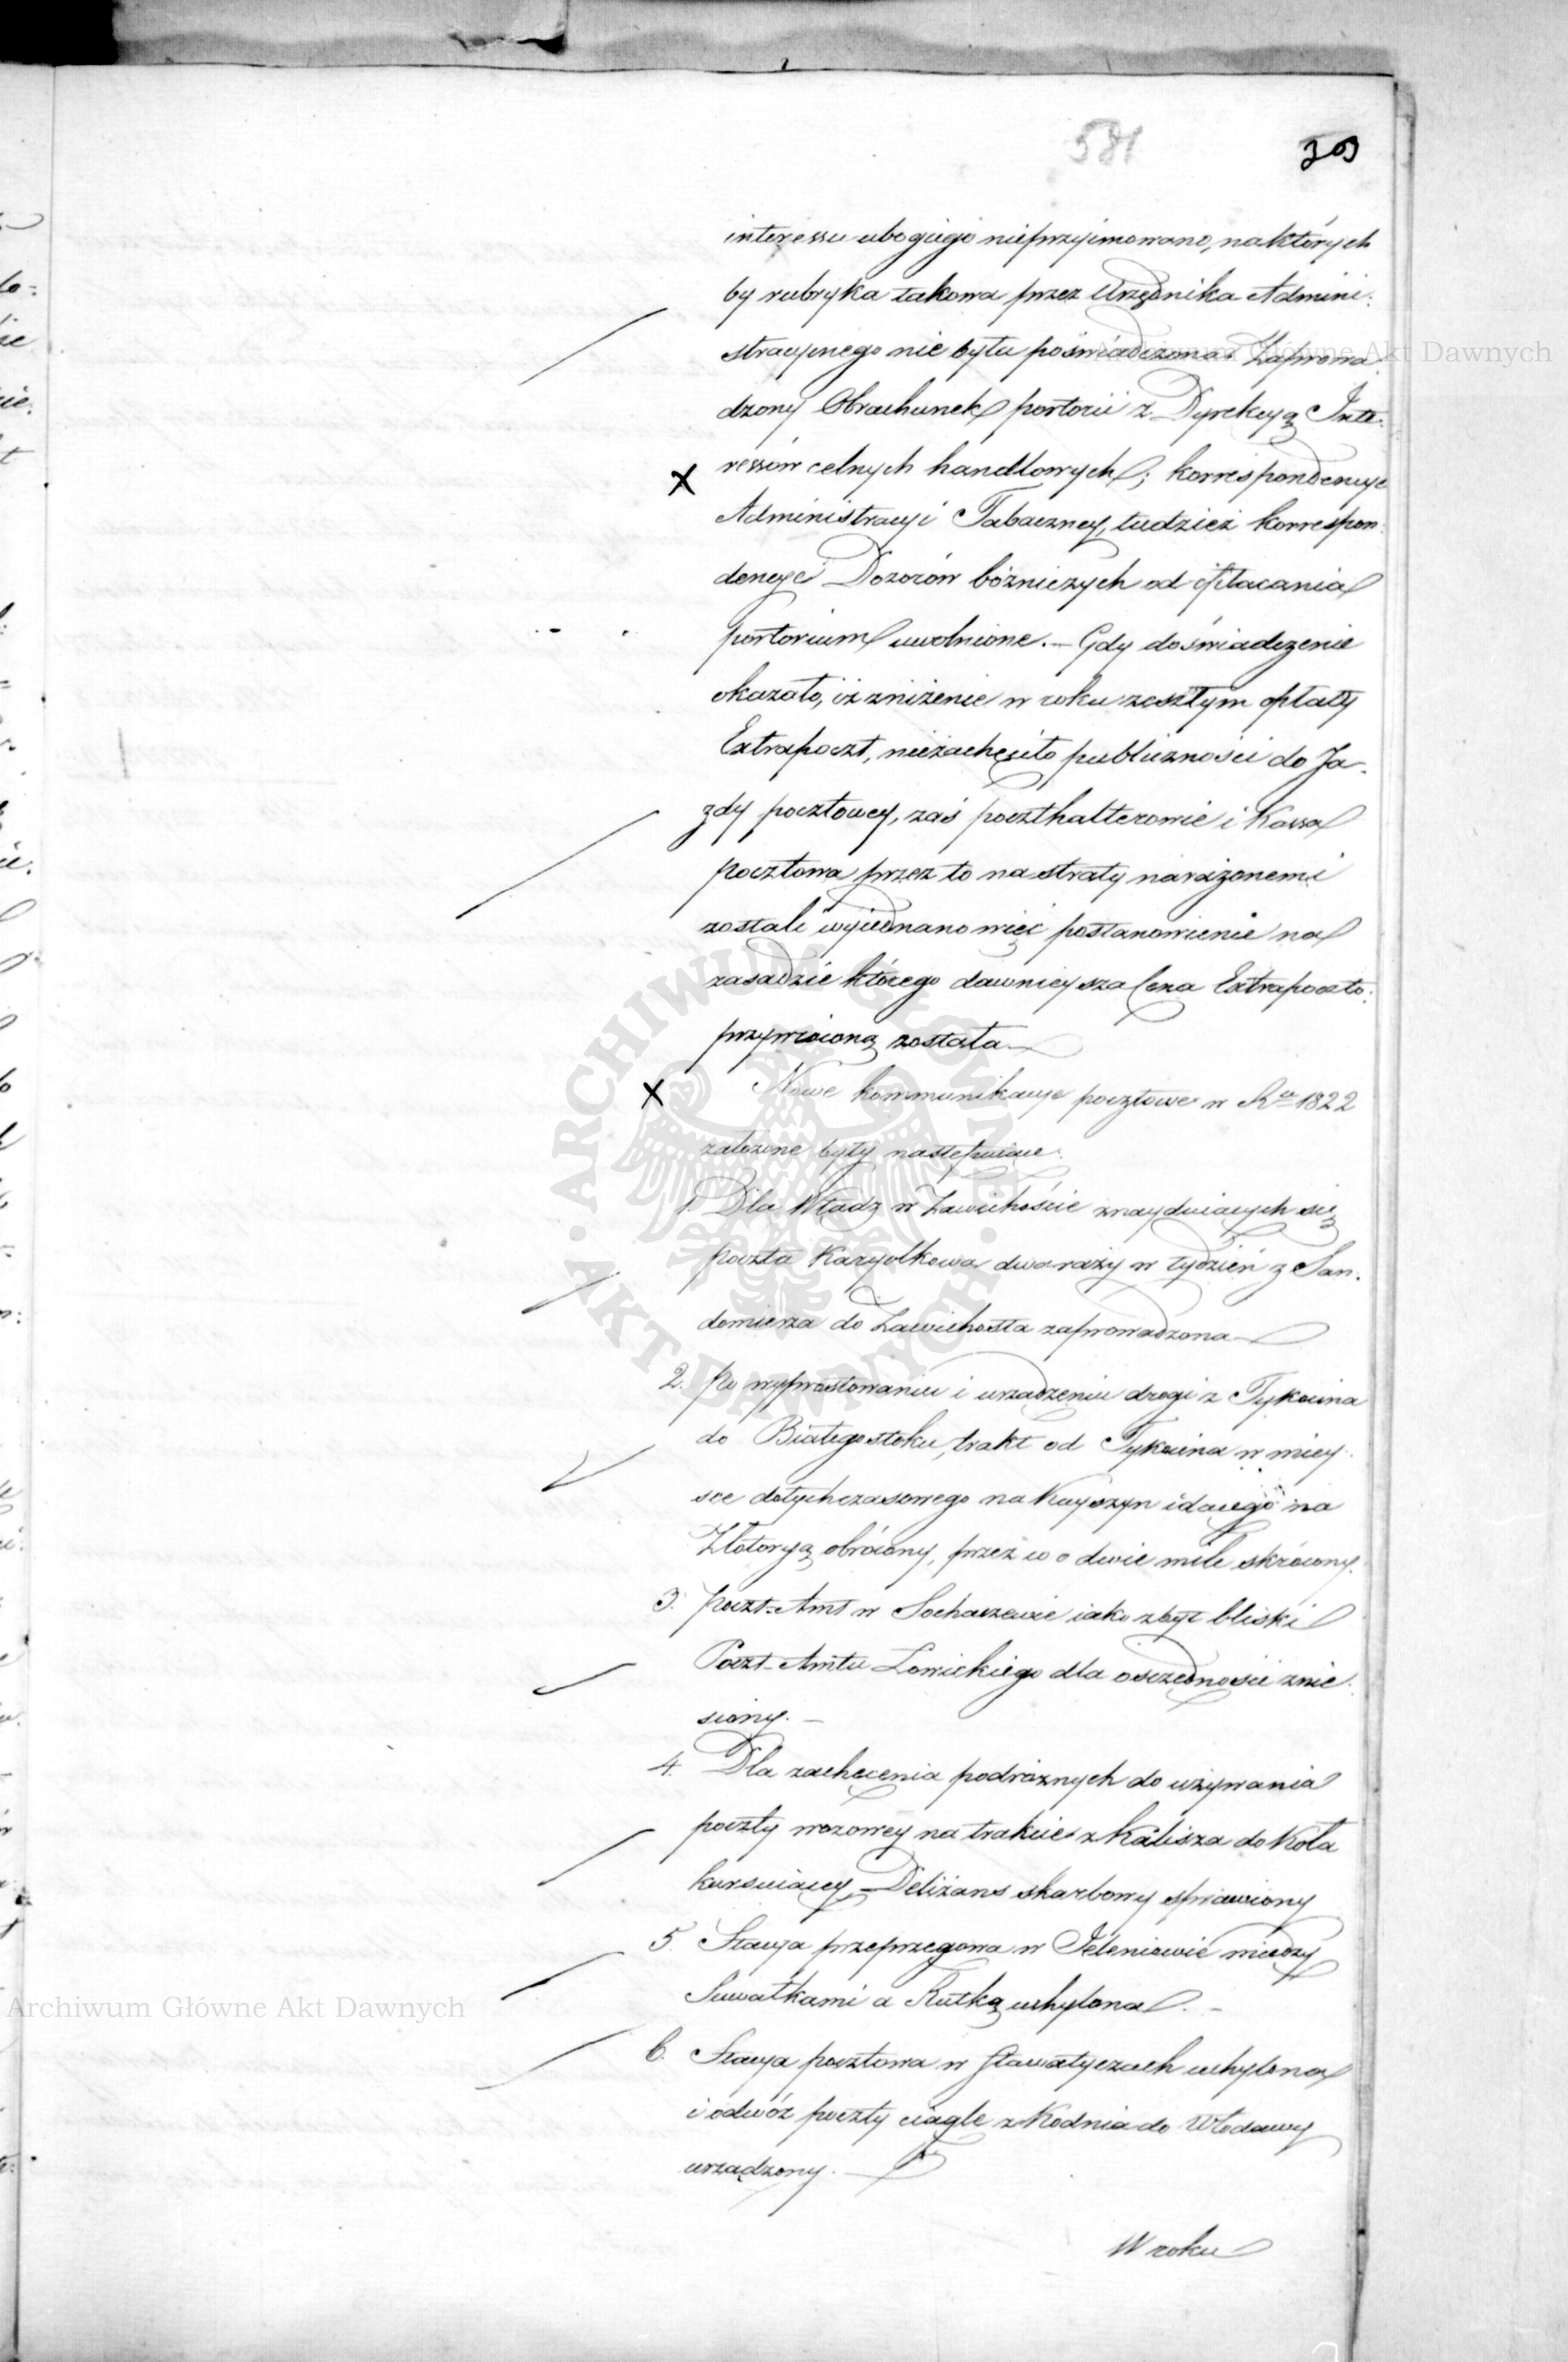 581
309
interessu ubogiego nieprzyimowano, na których
by rubryka takowa przez Urzędnika Admini:
stracyinego nie była poświadczona. Zaprowa
dzony Obrachunek portorii z Dyrekcyą Inte:
ressów celnych handlowych; korrespondencye
Administracyi Tabaczney, tudzież korrespon
dencye Dozorów bożniczych od opłacania
portorium uwolnione. — Gdy doświadczenie
okazało, iż zniżenie w roku zeszłym opłaty
Extrapoczt, niezachęciło publiczności do Ja
zdy pocztowey, zaś poczthalterowie i Kassa
pocztowa przez to na straty narażonemi
zostali wyiednano więc postanowienie na
zasadzie którego dawnieysza Cena Extrapoczto:
przywróconą została —
Nowe kommunikacye pocztowe w Rᵘ 1822
założone były następuiące:
1. Dla Władz w Zawichoście znayduiących się
poczta Karyolkowa dwa razy w tydzień z San
domierza do Zawichosta zaprowadzona —
2. Po wyprostowaniu i urządzeniu drogi z Tykocina
do Białegostoku, trakt od Tykocina w miey
sce dotychczasowego na Knyszyn idącego na
Złotoryą obrócony, przez co o dwie mile skrócony.
3. Poczt-Amt w Sochaczewie iako zbyt bliski
Poczt-Amtu Łowickiego dla oszczędności znie
siony. —
4. Dla zachęcenia podróżnych do używania
poczty wozowey na trakcie z Kalisza do Koła
kursuiącey, Deliżans skarbowy sprawiony
5. Stacya przeprzęgowa w Jeleniewie między
Suwałkami a Rutką uchylona. —
6. Stacya pocztowa w Sławatyczach uchylona
i odwóz poczty ciągle z Kodnia do Włodawy
urządzony. —
W roku
Archiwum Główne Akt Dawnych
Archiwum Główne Akt Dawnych
ARCHIWUM GŁÓWNE · AKT DAWNYCH ·